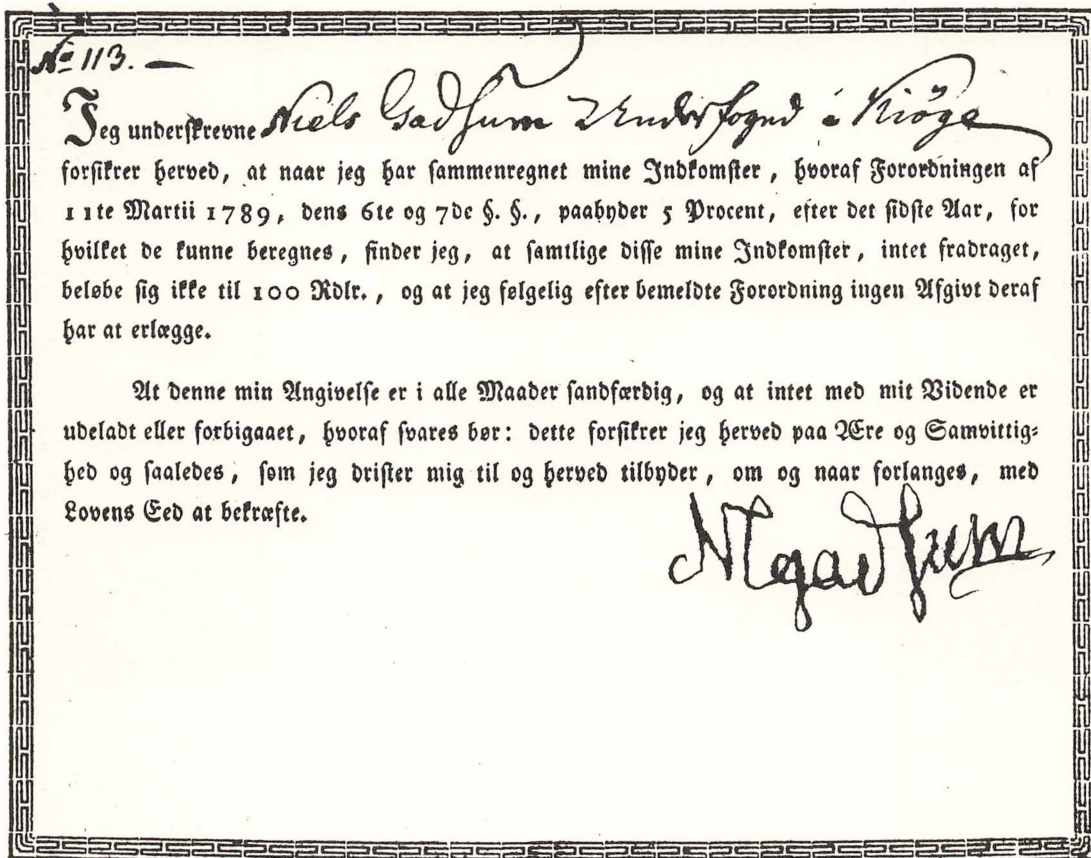 No 113. —
Jeg underskrevne Niels Gadhum Underfoged i Kiöge
forsikrer herved, at naar jeg har sammenregnet mine Indkomster, hvoraf Forordningen af
11te Martii 1789, dens 6te og 7de §. §., paabyder 5 Procent, efter det sidste Aar, for
hvilket de kunne beregnes, finder jeg, at samtlige disse mine Indkomster, intet fradraget,
beløbe sig ikke til 100 Rdlr., og at jeg følgelig efter bemeldte Forordning ingen Afgivt deraf
har at erlægge.
At denne min Angivelse er i alle Maader sandfærdig, og at intet med mit Vidende er
udeladt eller forbigaaet, hvoraf svares bør: dette forsikrer jeg herved paa Ære og Samvittig=
hed og saaledes, som jeg drister mig til og herved tilbyder, om og naar forlanges, med
Lovens Eed at bekræfte.
NGadhum